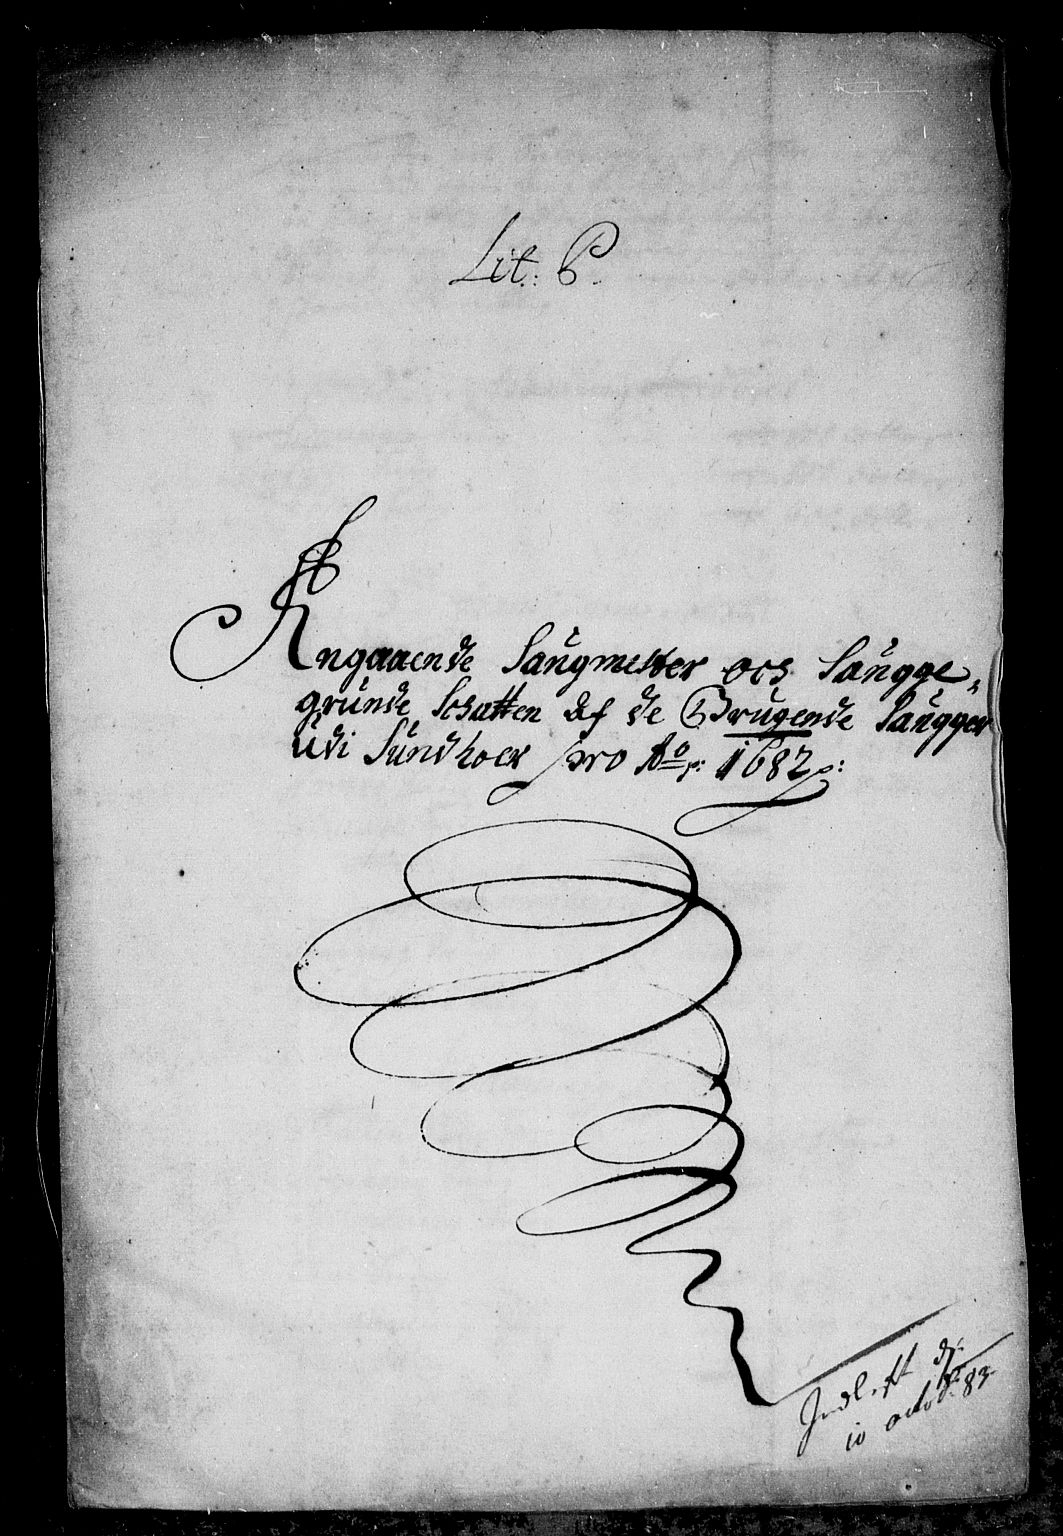 Lit: P.
Angaaende Saugmester och Saugge-
grunde Schatten af de Brugende Saugger
udi Sundhoer pro Ao: 1682:
10 octob: 83